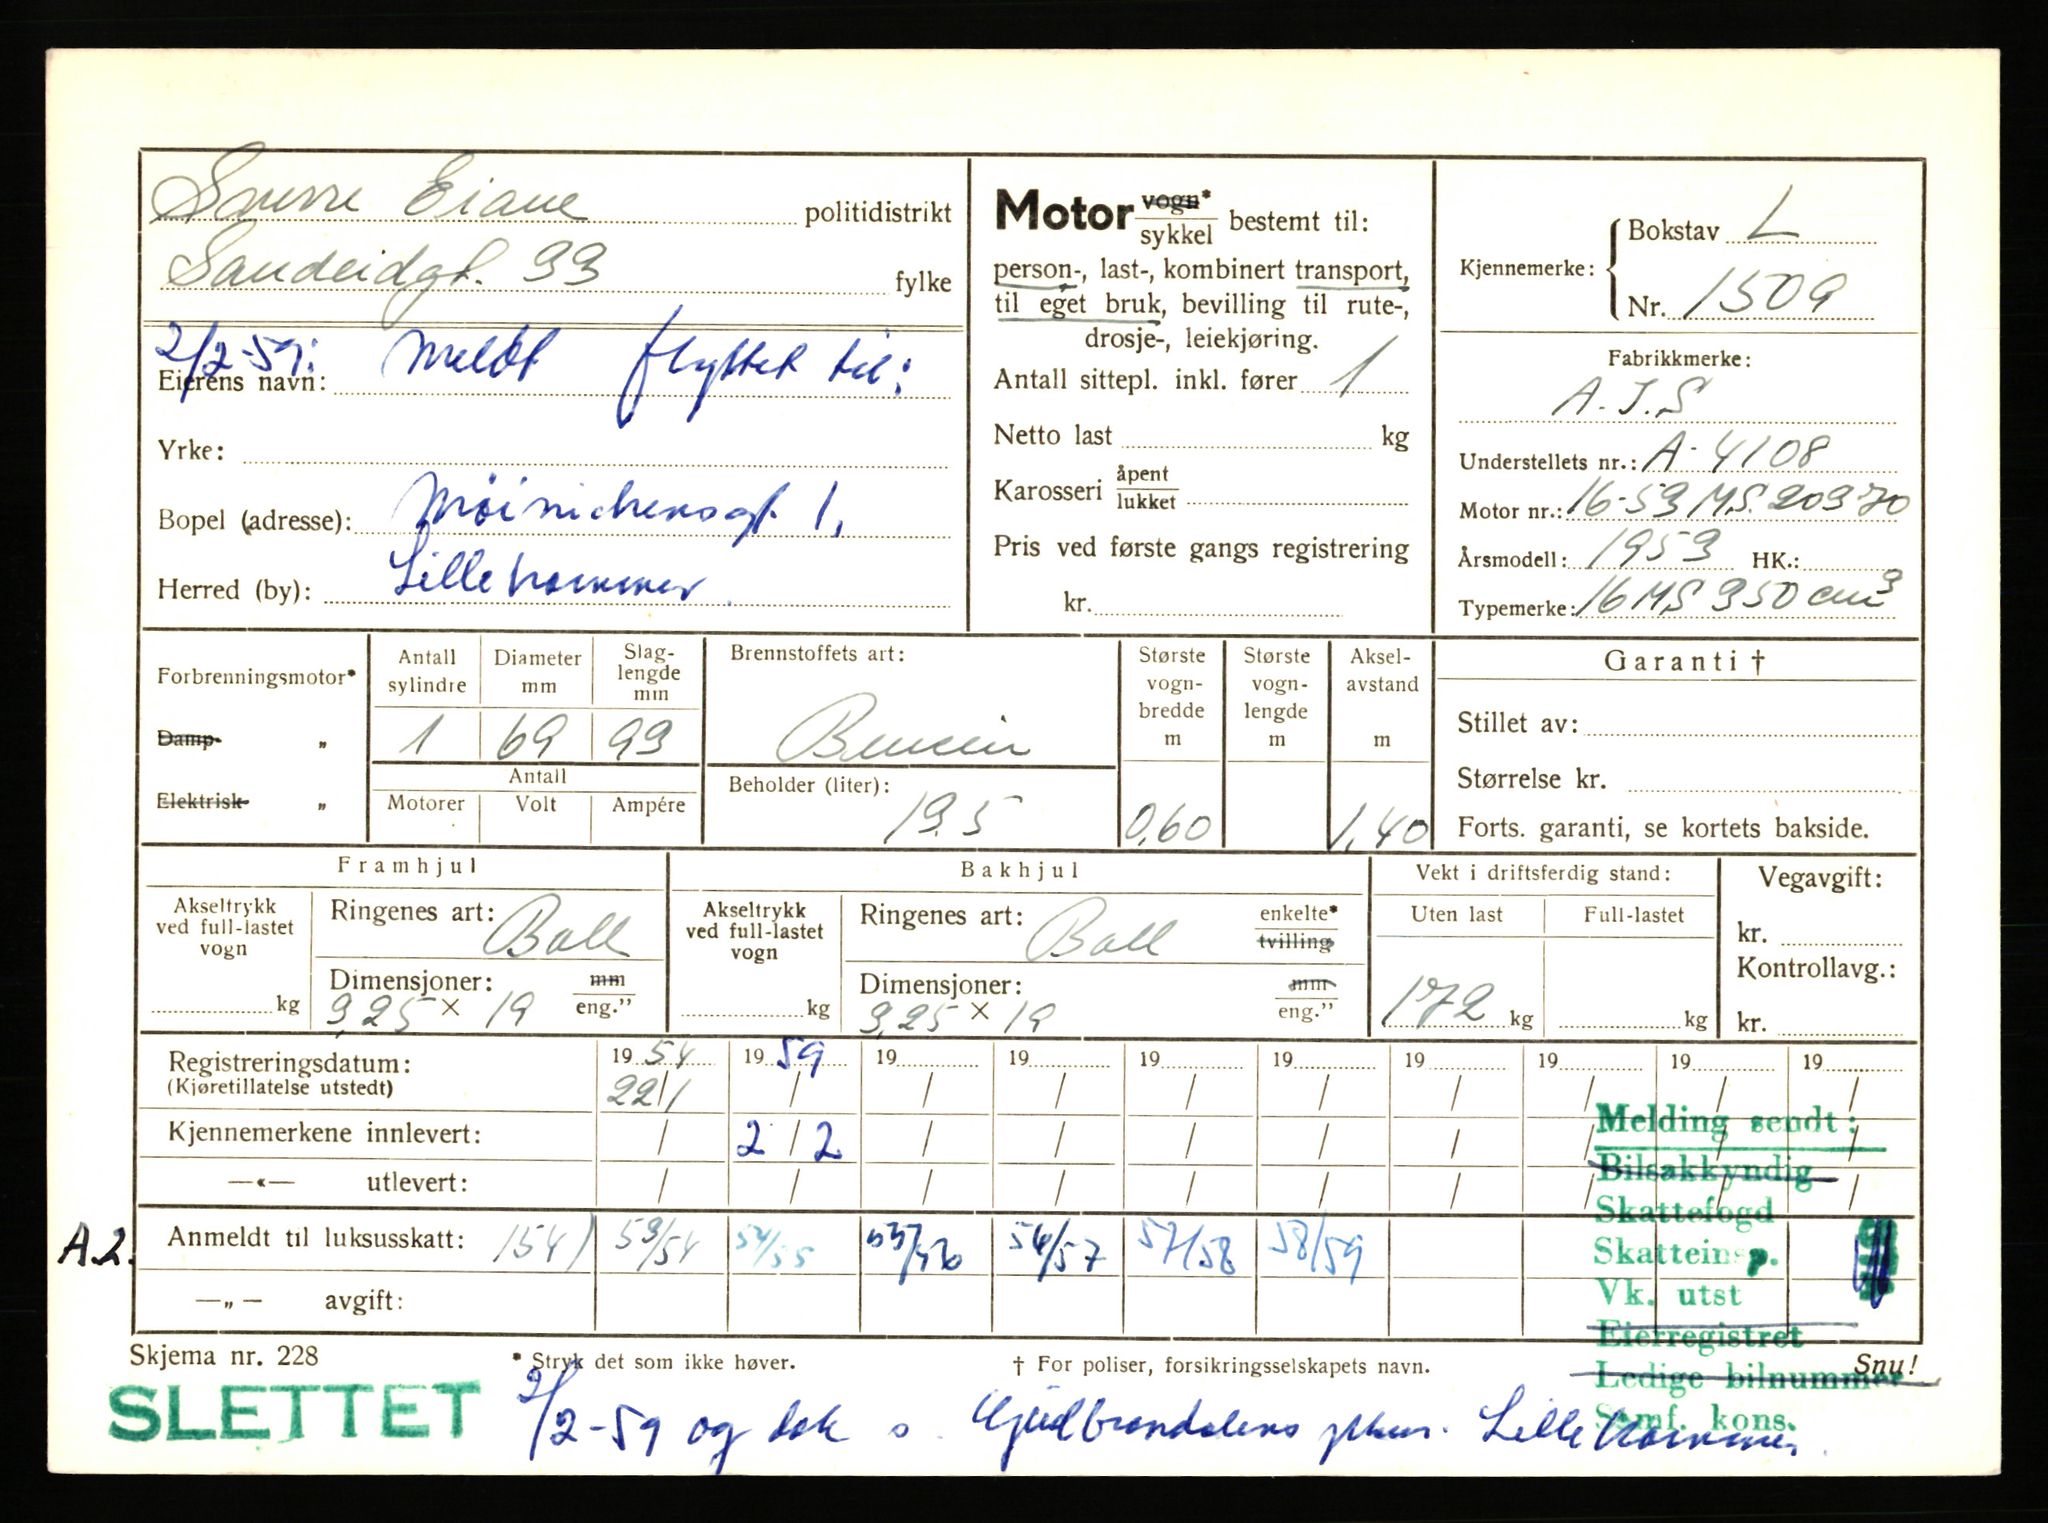 Sverre Eiane politidistrikt
Sandeidgt. 33 fylke
2/2-59: Meldt flyttet til:
Eierens navn:
Yrke:
Bopel (adresse): Møinichensgt. 1,
Herred (by): Lillehammer.
Motor vogn*/sykkel bestemt til:
person-, last-, kombinert transport,
til eget bruk, bevilling til rute-,
drosje-, leiekjøring.
Antall sittepl. inkl. fører 1
Netto last kg
Karosseri åpent/lukket
Pris ved første gangs registrering
kr.
Kjennemerke: Bokstav L
Nr. 1509
Fabrikkmerke:
A.J.S
Understellets nr.: A-4108
Motor nr.: 16-53 MS. 20370
Årsmodell: 1953 HK.:
Typemerke: 16 MS 350 cm3
Forbrenningsmotor*
Damp- „
Elektrisk- „
Antall sylindre
1
Diameter mm
69
Slag-lengde mm
93
Antall
Motorer Volt Ampére
Brennstoffets art:
Bensin
Beholder (liter):
13,5
Største vogn-bredde m
0,60
Største vogn-lengde m
Aksel-avstand m
1,40
Garanti †
Stillet av:
Størrelse kr.
Forts. garanti, se kortets bakside.
Framhjul
Akseltrykk ved full-lastet vogn
kg
Ringenes art: Ball
Dimensjoner: mm/eng.”
3,25 × 19
Bakhjul
Akseltrykk ved full-lastet vogn
kg
Ringenes art: Ball enkelte*/tvilling
Dimensjoner: mm/eng.”
3,25 × 19
Vekt i driftsferdig stand:
Uten last Full-lastet
172 kg kg
Vegavgift:
kr.
Kontrollavg.:
kr.
Registreringsdatum: 19 54 19 59 19 19 19 19 19 19 19 19
(Kjøretillatelse utstedt) 22/1 / / / / / / / / /
Kjennemerkene innlevert: / 2/2 / / / / / / / /
—«— utlevert: / / / / / / / / / /
A2. Anmeldt til luksusskatt: 154) 53/54 54/55 55/56 56/57 57/58 58/59
—„— avgift:
Melding sendt:
Bilsakkyndig
Skattefogd
Skatteinsp.
Vk. utst
Eierregistret
Ledige bilnummer
Samf. kons.
Skjema nr. 228 * Stryk det som ikke høver. † For poliser, forsikringsselskapets navn. Snu!
SLETTET 2/2-59 og dok s. Gudbrandalens pkam. Lillehammer.